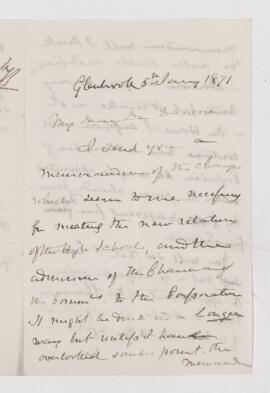 Glenbrook 5th Jany 1871
My Dear Dr
I send you a
memorandum of the changes
which seem to me necessary
for meeting the new relation
of the High School, and the
admission of the Chancery
to the Corporation
It might be done in a longer
way but unless I have
overlooked some point the
memorandum